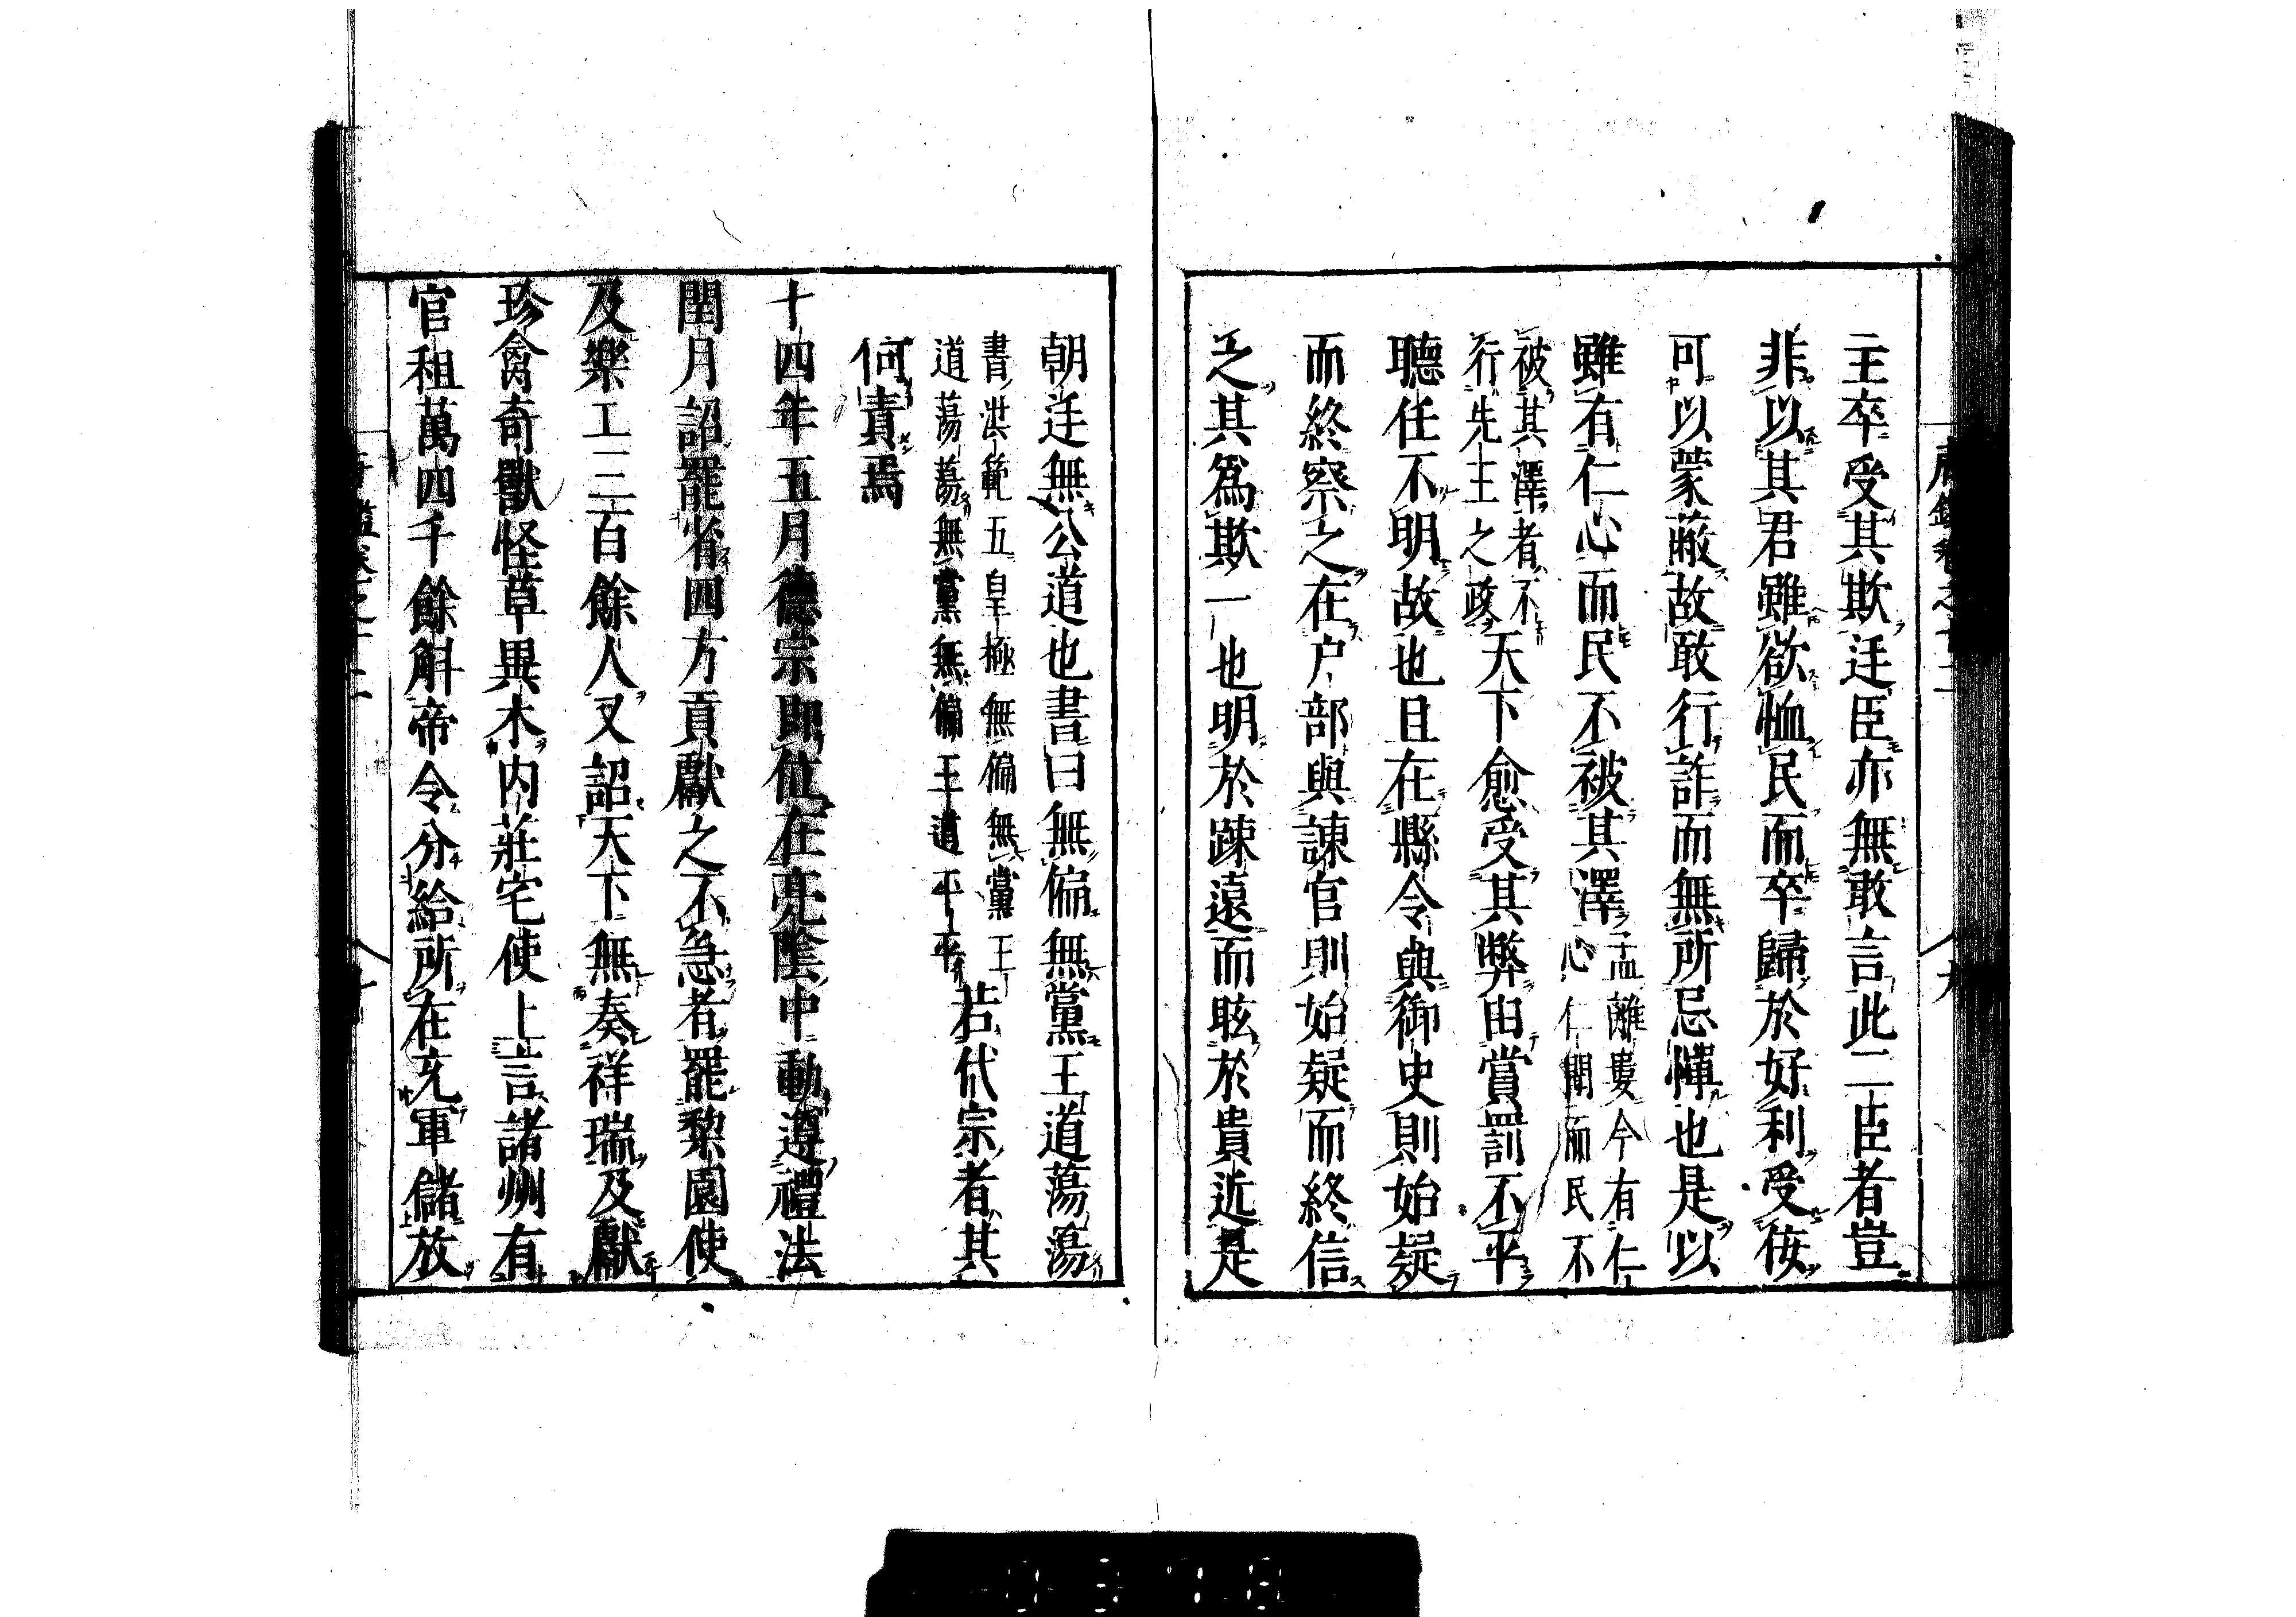 主卒受其欺迋臣亦無敢言此二臣者豈
非以其君雖欲恤民而卒歸於好利受侫
可以蒙蔽故敢行詐而無所忌憚也是以
雖有仁心而民不被其澤孟離婁今有仁
心仁聞而民不
被其澤者不
行先王之政天下愈受其弊由賞罰不平
聽任不明故也且在縣令與御史則始疑
而終察之在户部與諌官則始疑而終信
之其爲欺一也明於踈遠而眩於貴近是
朝迋無公道也書曰無偏無黨王道蕩蕩
書洪範五皇極無偏無黨王
道蕩蕩無黨無偏王道平平若代宗者其
何責焉
十四年五月德宗即位在亮陰中動遵禮法
閏月詔罷省四方貢獻之不急者罷黎園使
及樂工三百餘人又詔天下無奏祥瑞及獻
珍禽奇獸怪草異木内莊宅使上言諸州有
官租萬四千餘斛帝令分給所在充軍儲放